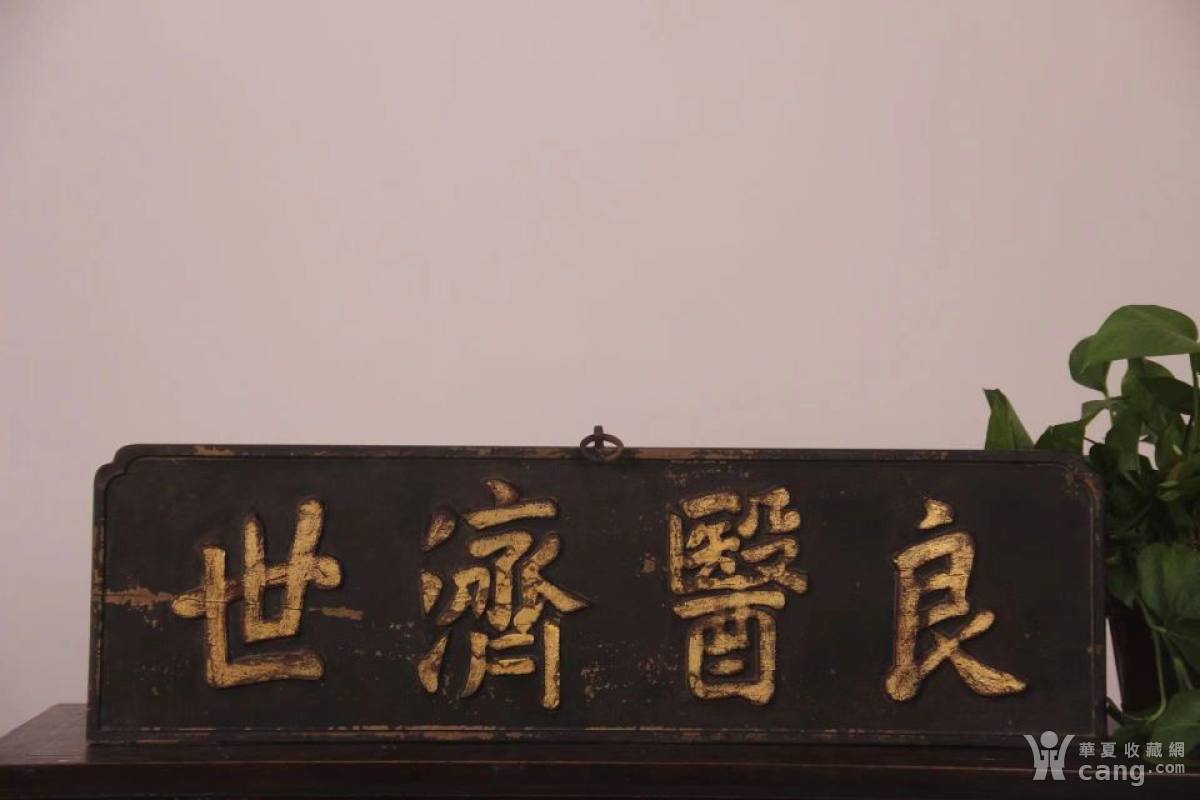 良醫濟世
華夏收藏網
cang.com